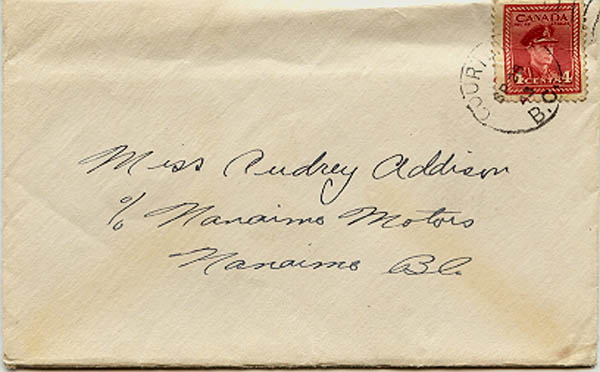 CANADA
4 CENTS 4
COURT
B.C.
Miss Audrey Addison
c/o Nanaimo Motors
Nanaimo B.C.